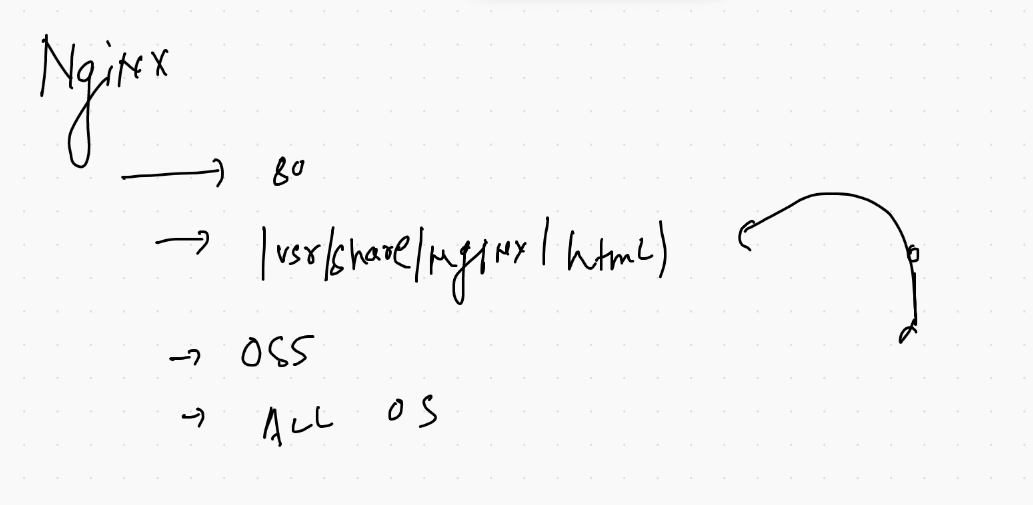 Nginx
→ 80
→ /usr/share/nginx/html/
→ OSS
→ ALL OS